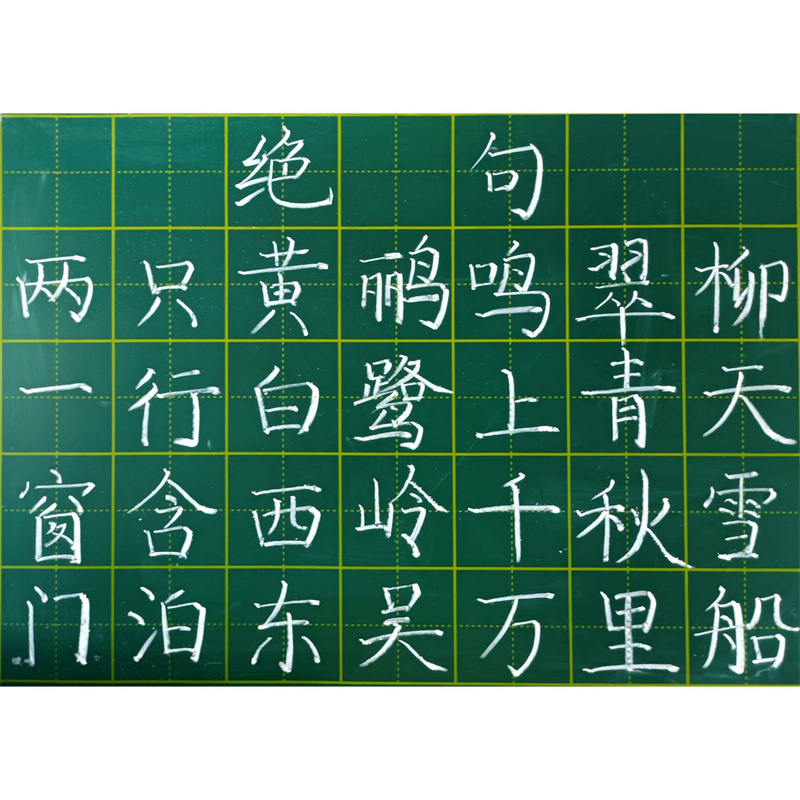 绝句
两只黄鹂鸣翠柳
一行白鹭上青天
窗含西岭千秋雪
门泊东吴万里船